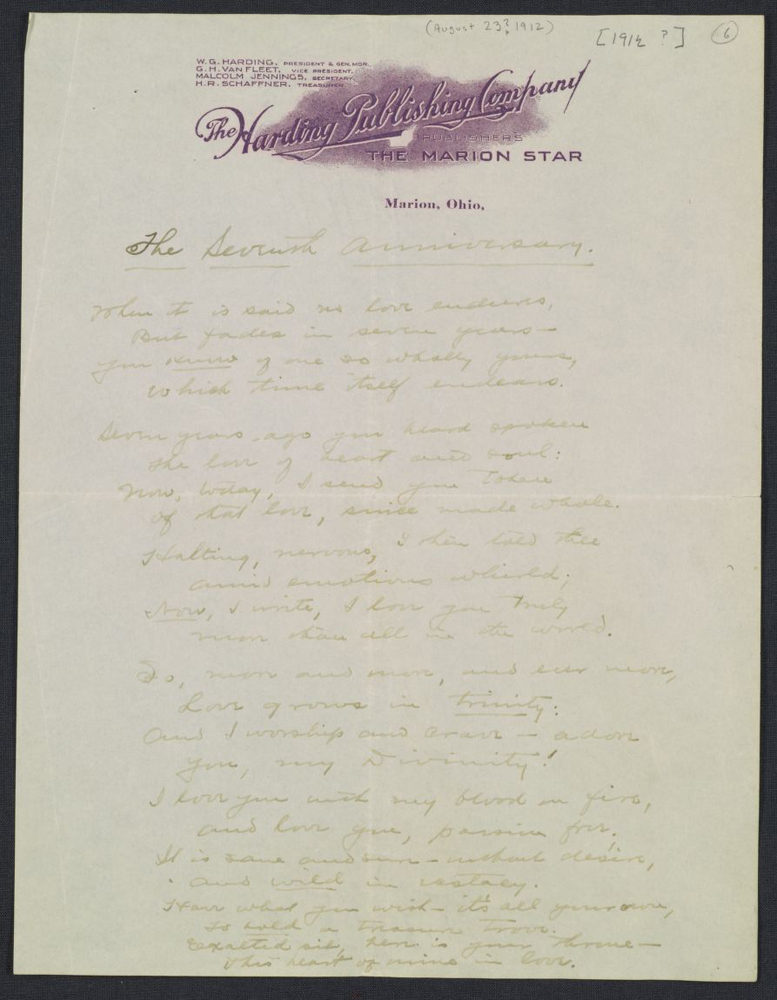 (August 23? 1912)
[1912 ?]
6
W. G. HARDING, PRESIDENT & GEN. MGR.
G. H. VAN FLEET, VICE PRESIDENT.
MALCOLM JENNINGS, SECRETARY.
H. R. SCHAFFNER, TREASURER
The Harding Publishing Company
PUBLISHERS
THE MARION STAR
Marion, Ohio,
The Seventh Anniversary.
When it is said no love endures,
But fades in seven years—
You know of one so wholly yours,
Which time itself endears.
Seven years ago you heard spoken
The love of heart and soul:
Now, today, I send you token
Of that love, since made whole.
Halting, nervous, I then told thee
amid emotions whirled;
Now, I write, I love you truly
more than all in the world.
So, more and more, and ever more,
Love grows in trinity:
And I worship and crave — adore
you, my Divinity!
I love you with my blood on fire,
and love you, passion free.
It is sane and sure — without desire,
and wild in ecstacy.
Have what you wish — it's all your own,
to hold a treasure trove.
Exalted sit, here is your throne—
This heart of mine in love.